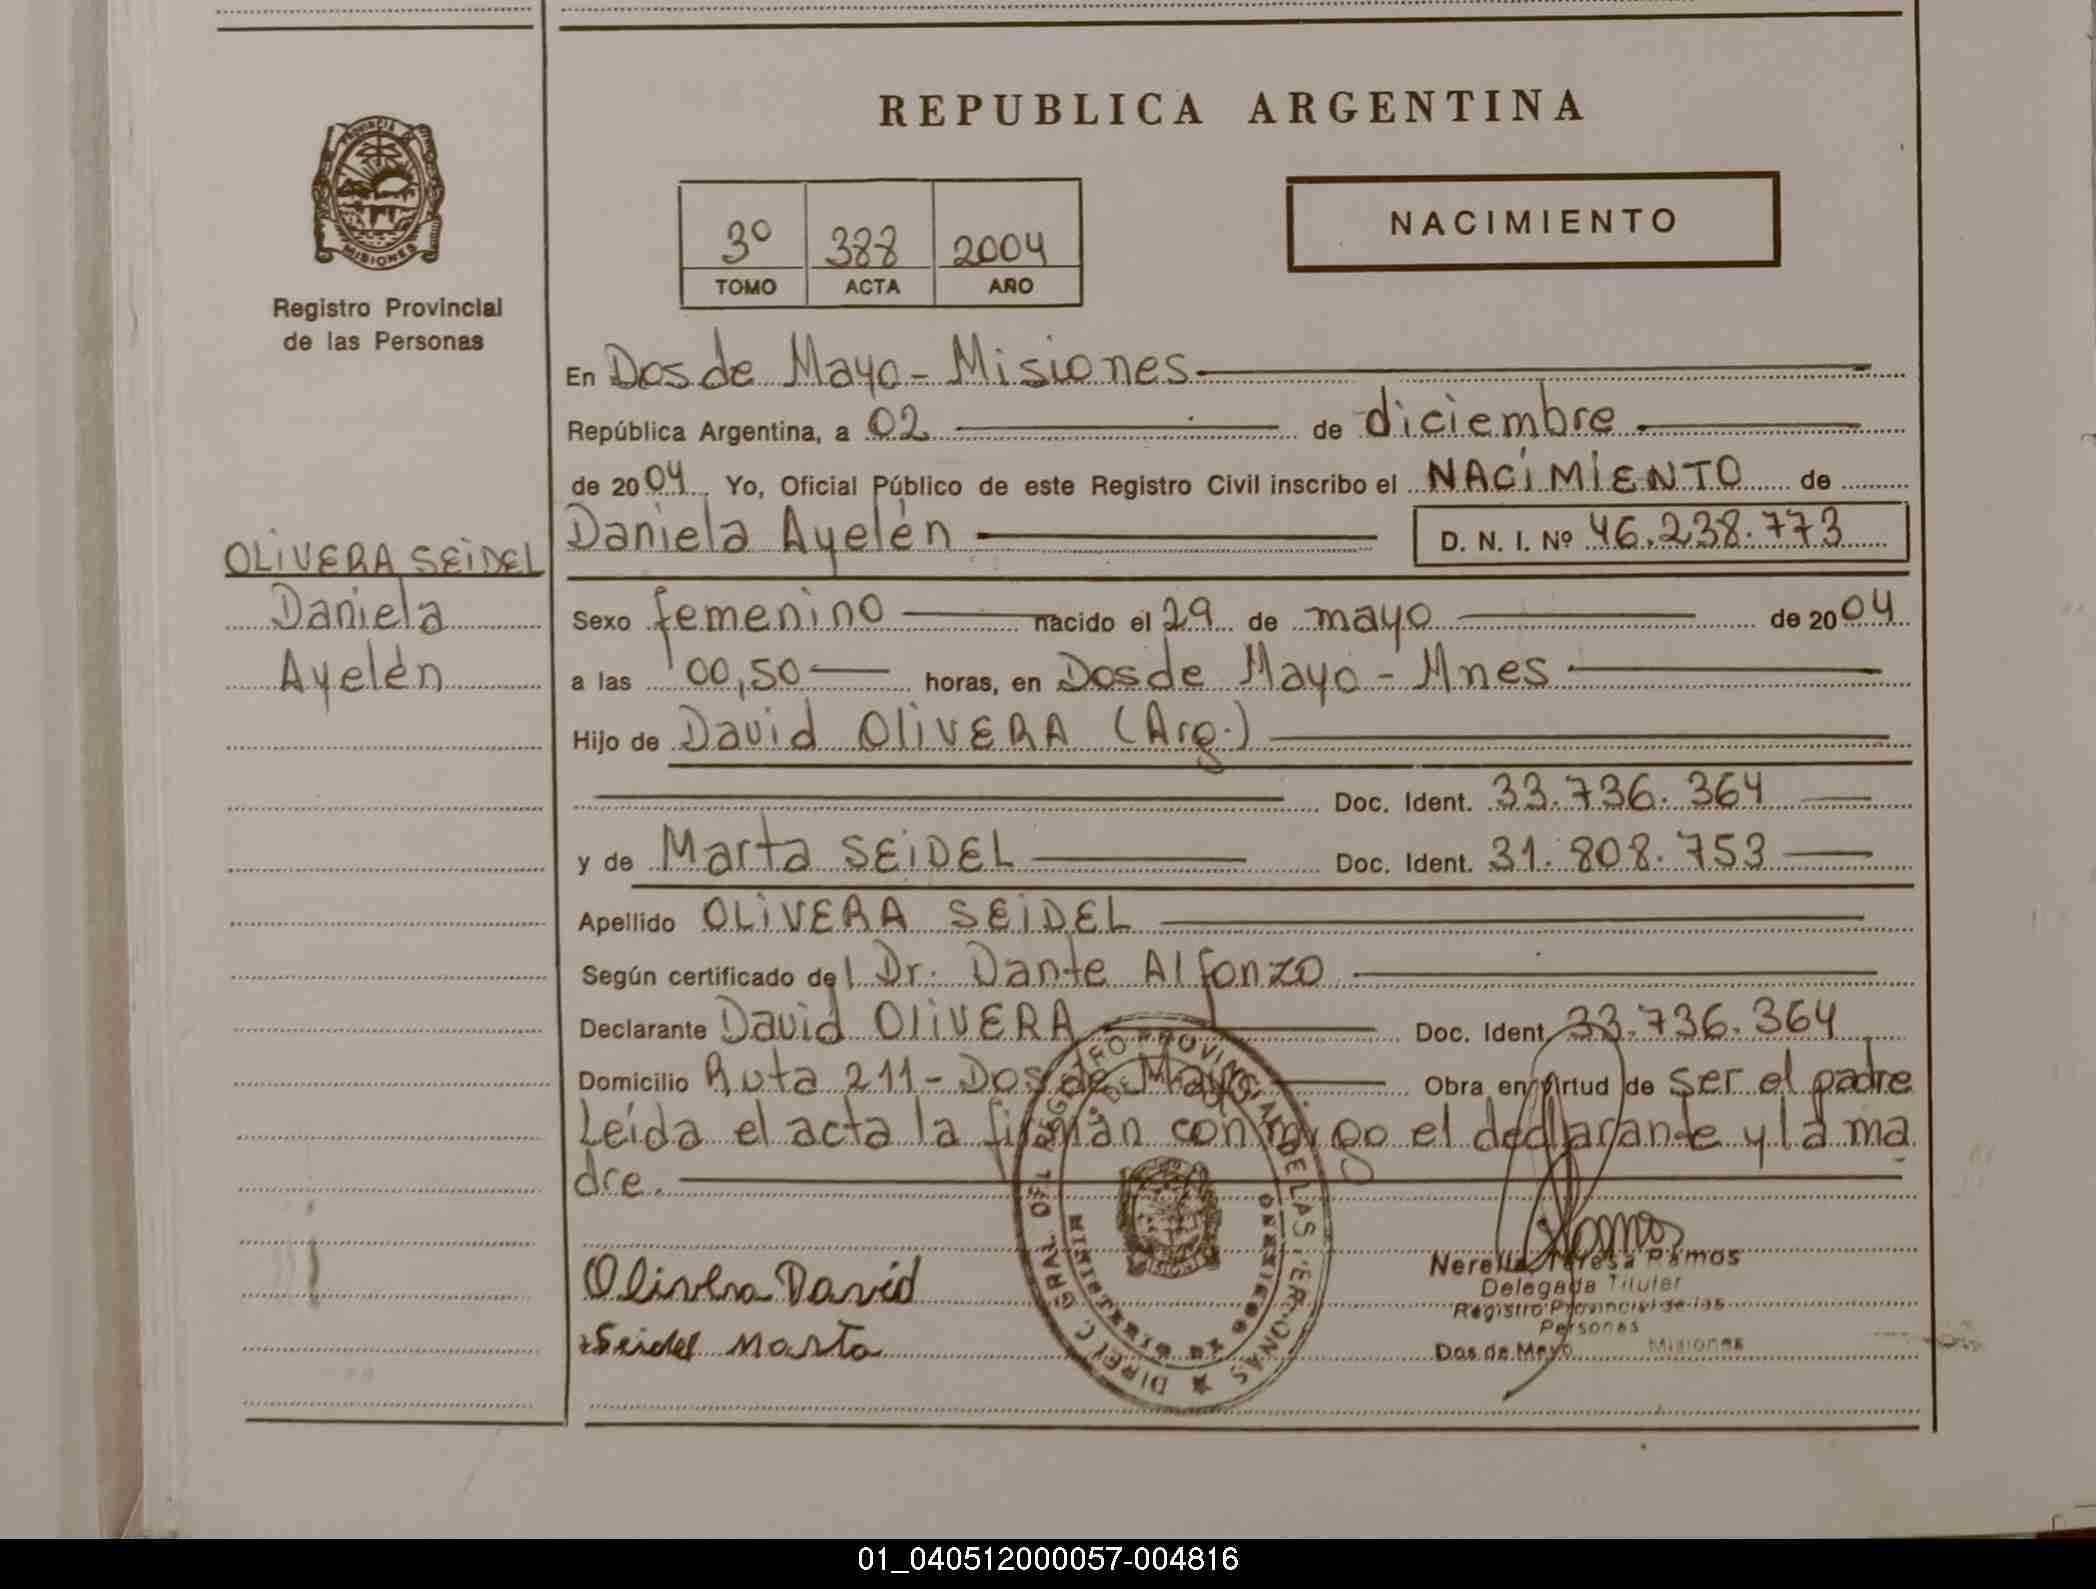 REPUBLICA ARGENTINA
PROVINCIA DE
MISIONES
Registro Provincial
de las Personas
NACIMIENTO
3º 388 2004
TOMO ACTA AÑO
En Dos de Mayo - Misiones
República Argentina, a 02 de diciembre
de 2004 Yo, Oficial Público de este Registro Civil inscribo el NACIMIENTO de
Daniela Ayelén D. N. I. Nº 46.238.773
OLIVERA SEIDEL
Daniela
Ayelén
Sexo femenino nacido el 29 de mayo de 2004
a las 00,50 horas, en Dos de Mayo - Mnes
Hijo de David OliVERA (Arg.)
Doc. Ident. 33.736.364
y de Marta SEIDEL Doc. Ident. 31.808.753
Apellido OLIVERA SEIDEL
Según certificado del Dr. Dante Alfonzo
Declarante David OliVERA Doc. Ident. 33.736.364
Domicilio Ruta 211 - Dos de Mayo Obra en virtud de ser el padre
Leída el acta la firman conmigo el declarante y la ma
dre.
Olivera David
Seidel Marta
DIREC. GRAL DEL REGISTRO PROVINCIAL DE LAS PERSONAS
Ramos
Nerella Teresa Ramos
Delegada Titular
Registro Provincial de las
Personas
Dos de Mayo Misiones
01_040512000057-004816